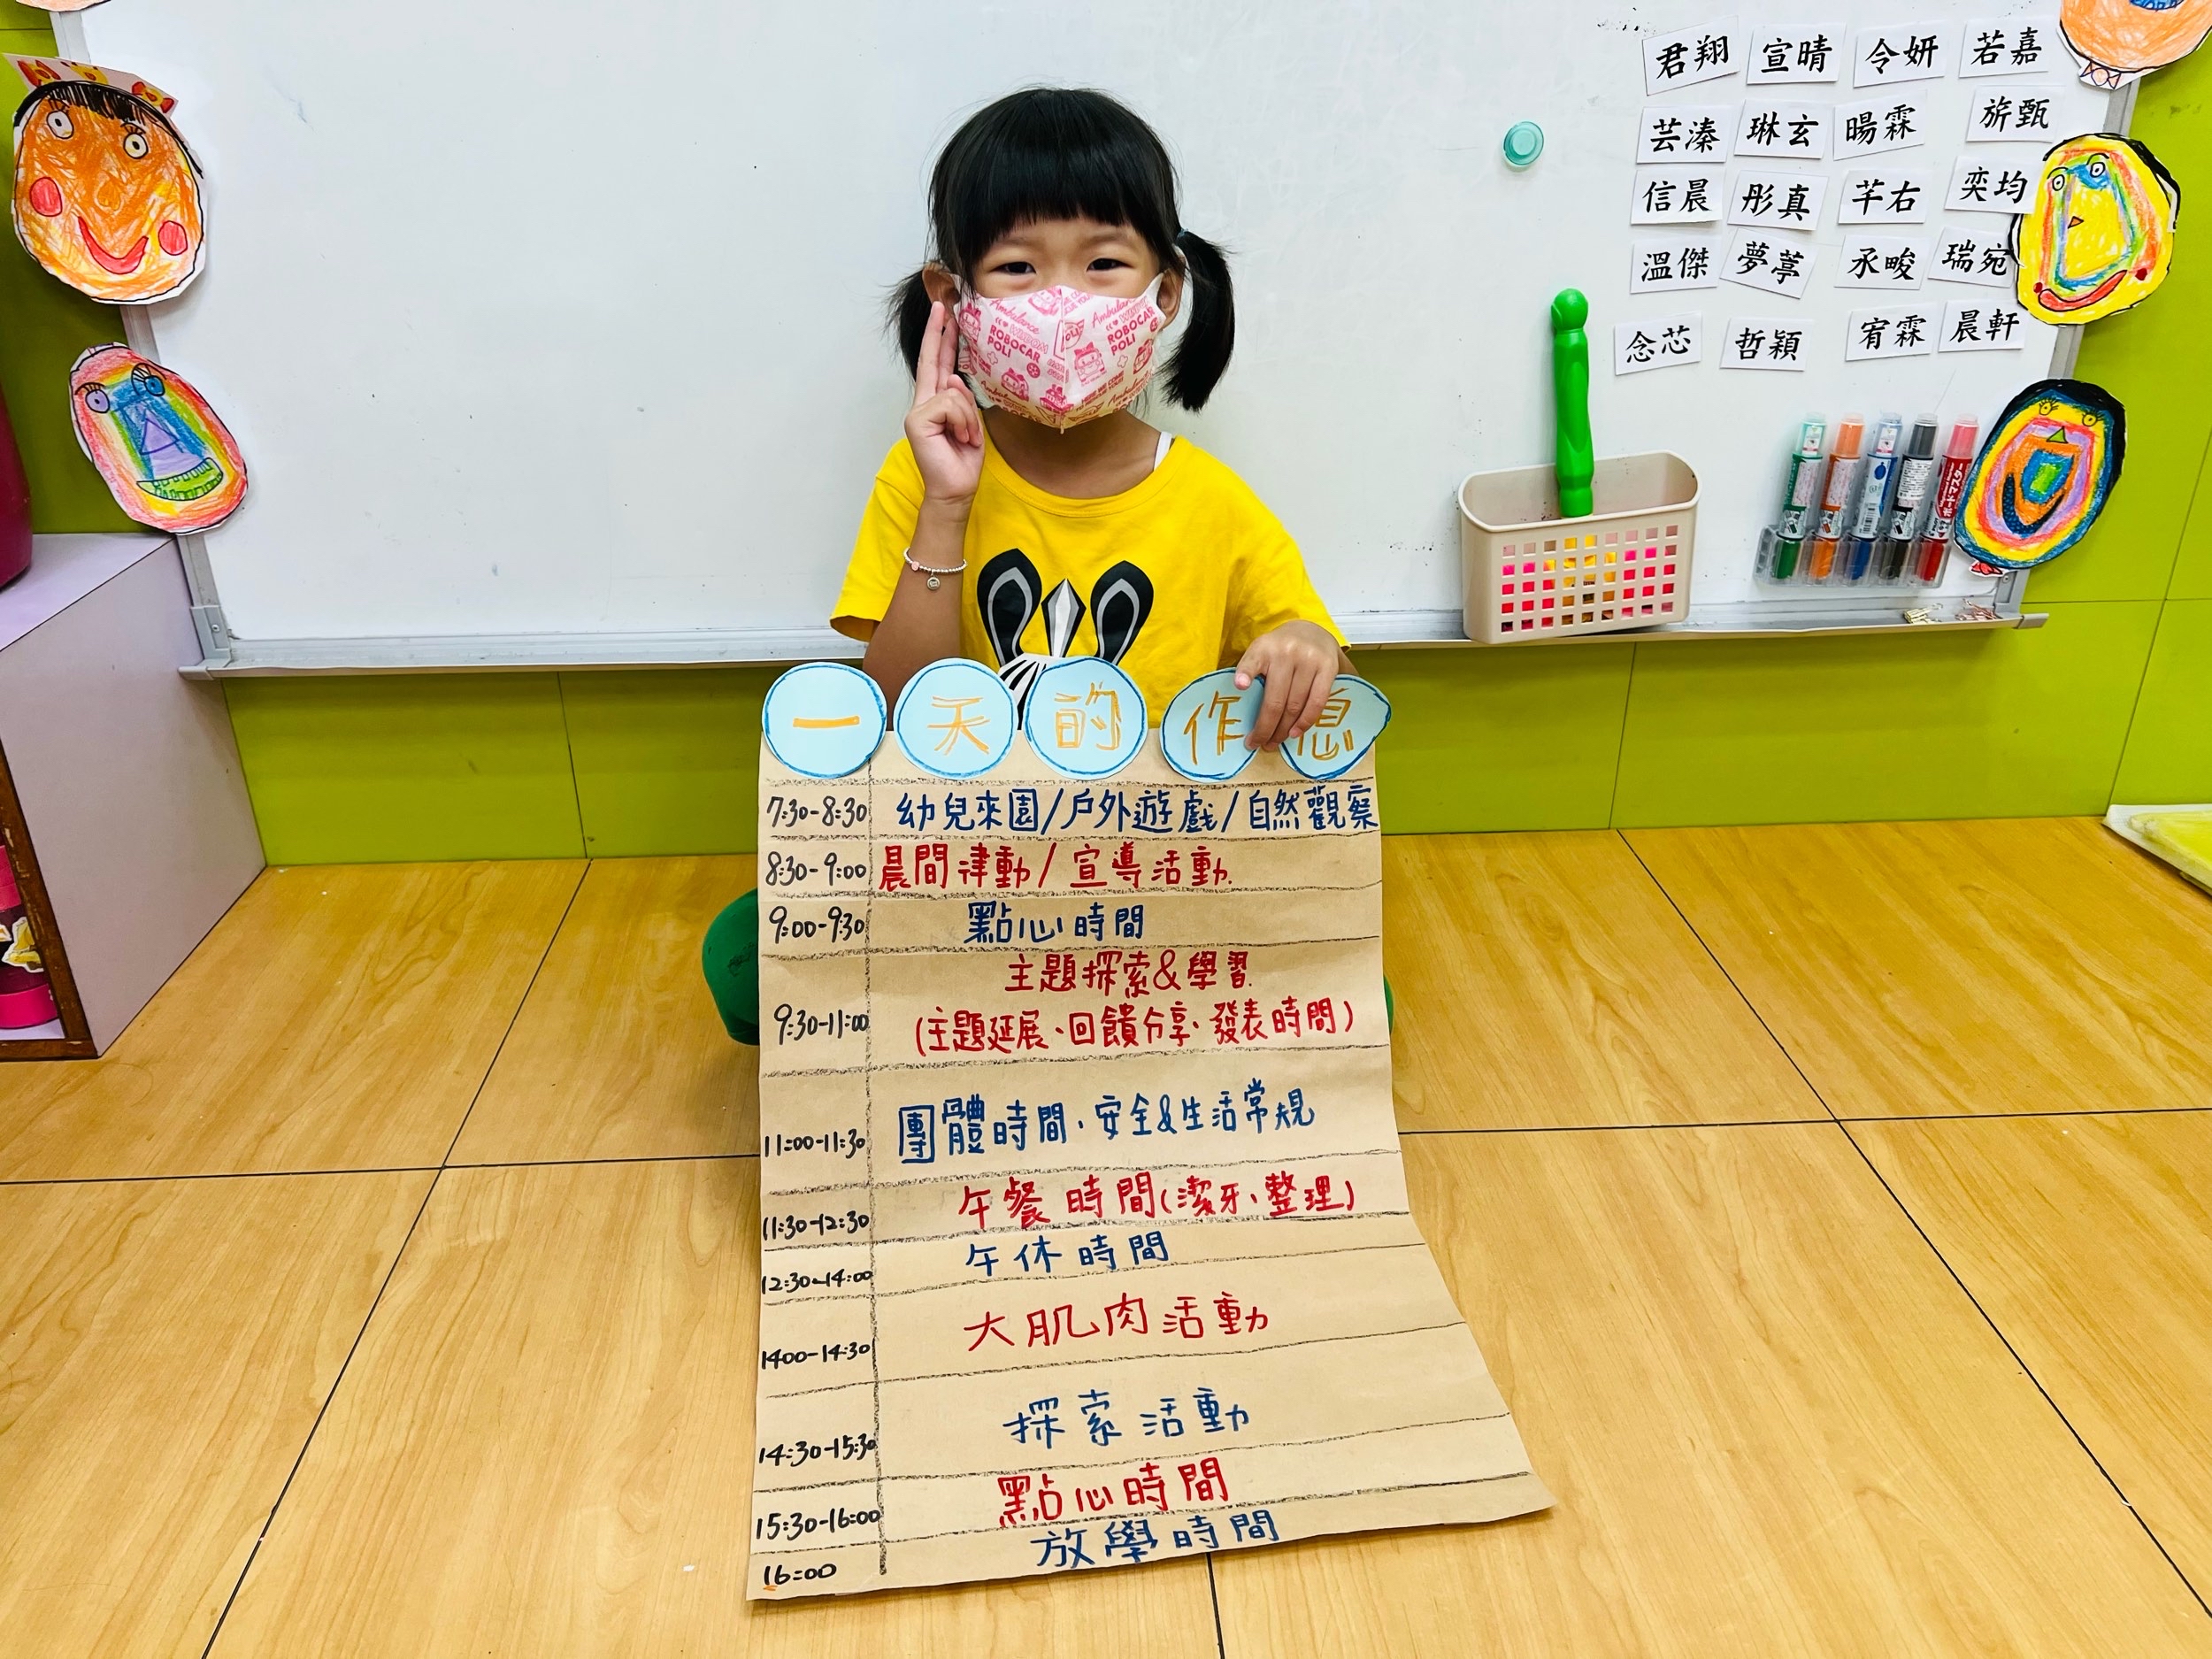 君翔 宣晴 令妍 若嘉
芸溱 琳玄 暘霖 旂甄
信晨 彤真 芊右 奕均
溫傑 夢葶 承畯 瑞宛
念芯 哲穎 宥霖 晨軒
Ambulance
ROBOCAR
POLI
Ambulance
ROBOCAR
POLI
一天的作息
7:30-8:30 幼兒來園/戶外遊戲/自然觀察
8:30-9:00 晨間律動/宣導活動
9:00-9:30 點心時間
主題探索&學習
9:30-11:00 (主題延展、回饋分享、發表時間)
11:00-11:30 團體時間、安全&生活常規
11:30-12:30 午餐時間(潔牙、整理)
12:30-14:00 午休時間
1400-14:30 大肌肉活動
14:30-15:30 探索活動
15:30-16:00 點心時間
16:00 放學時間